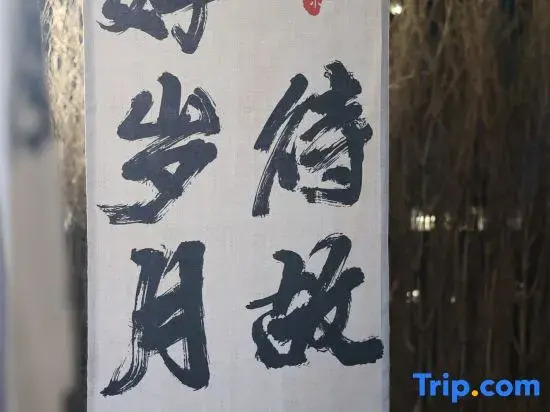 待故
好岁月
Trip.com